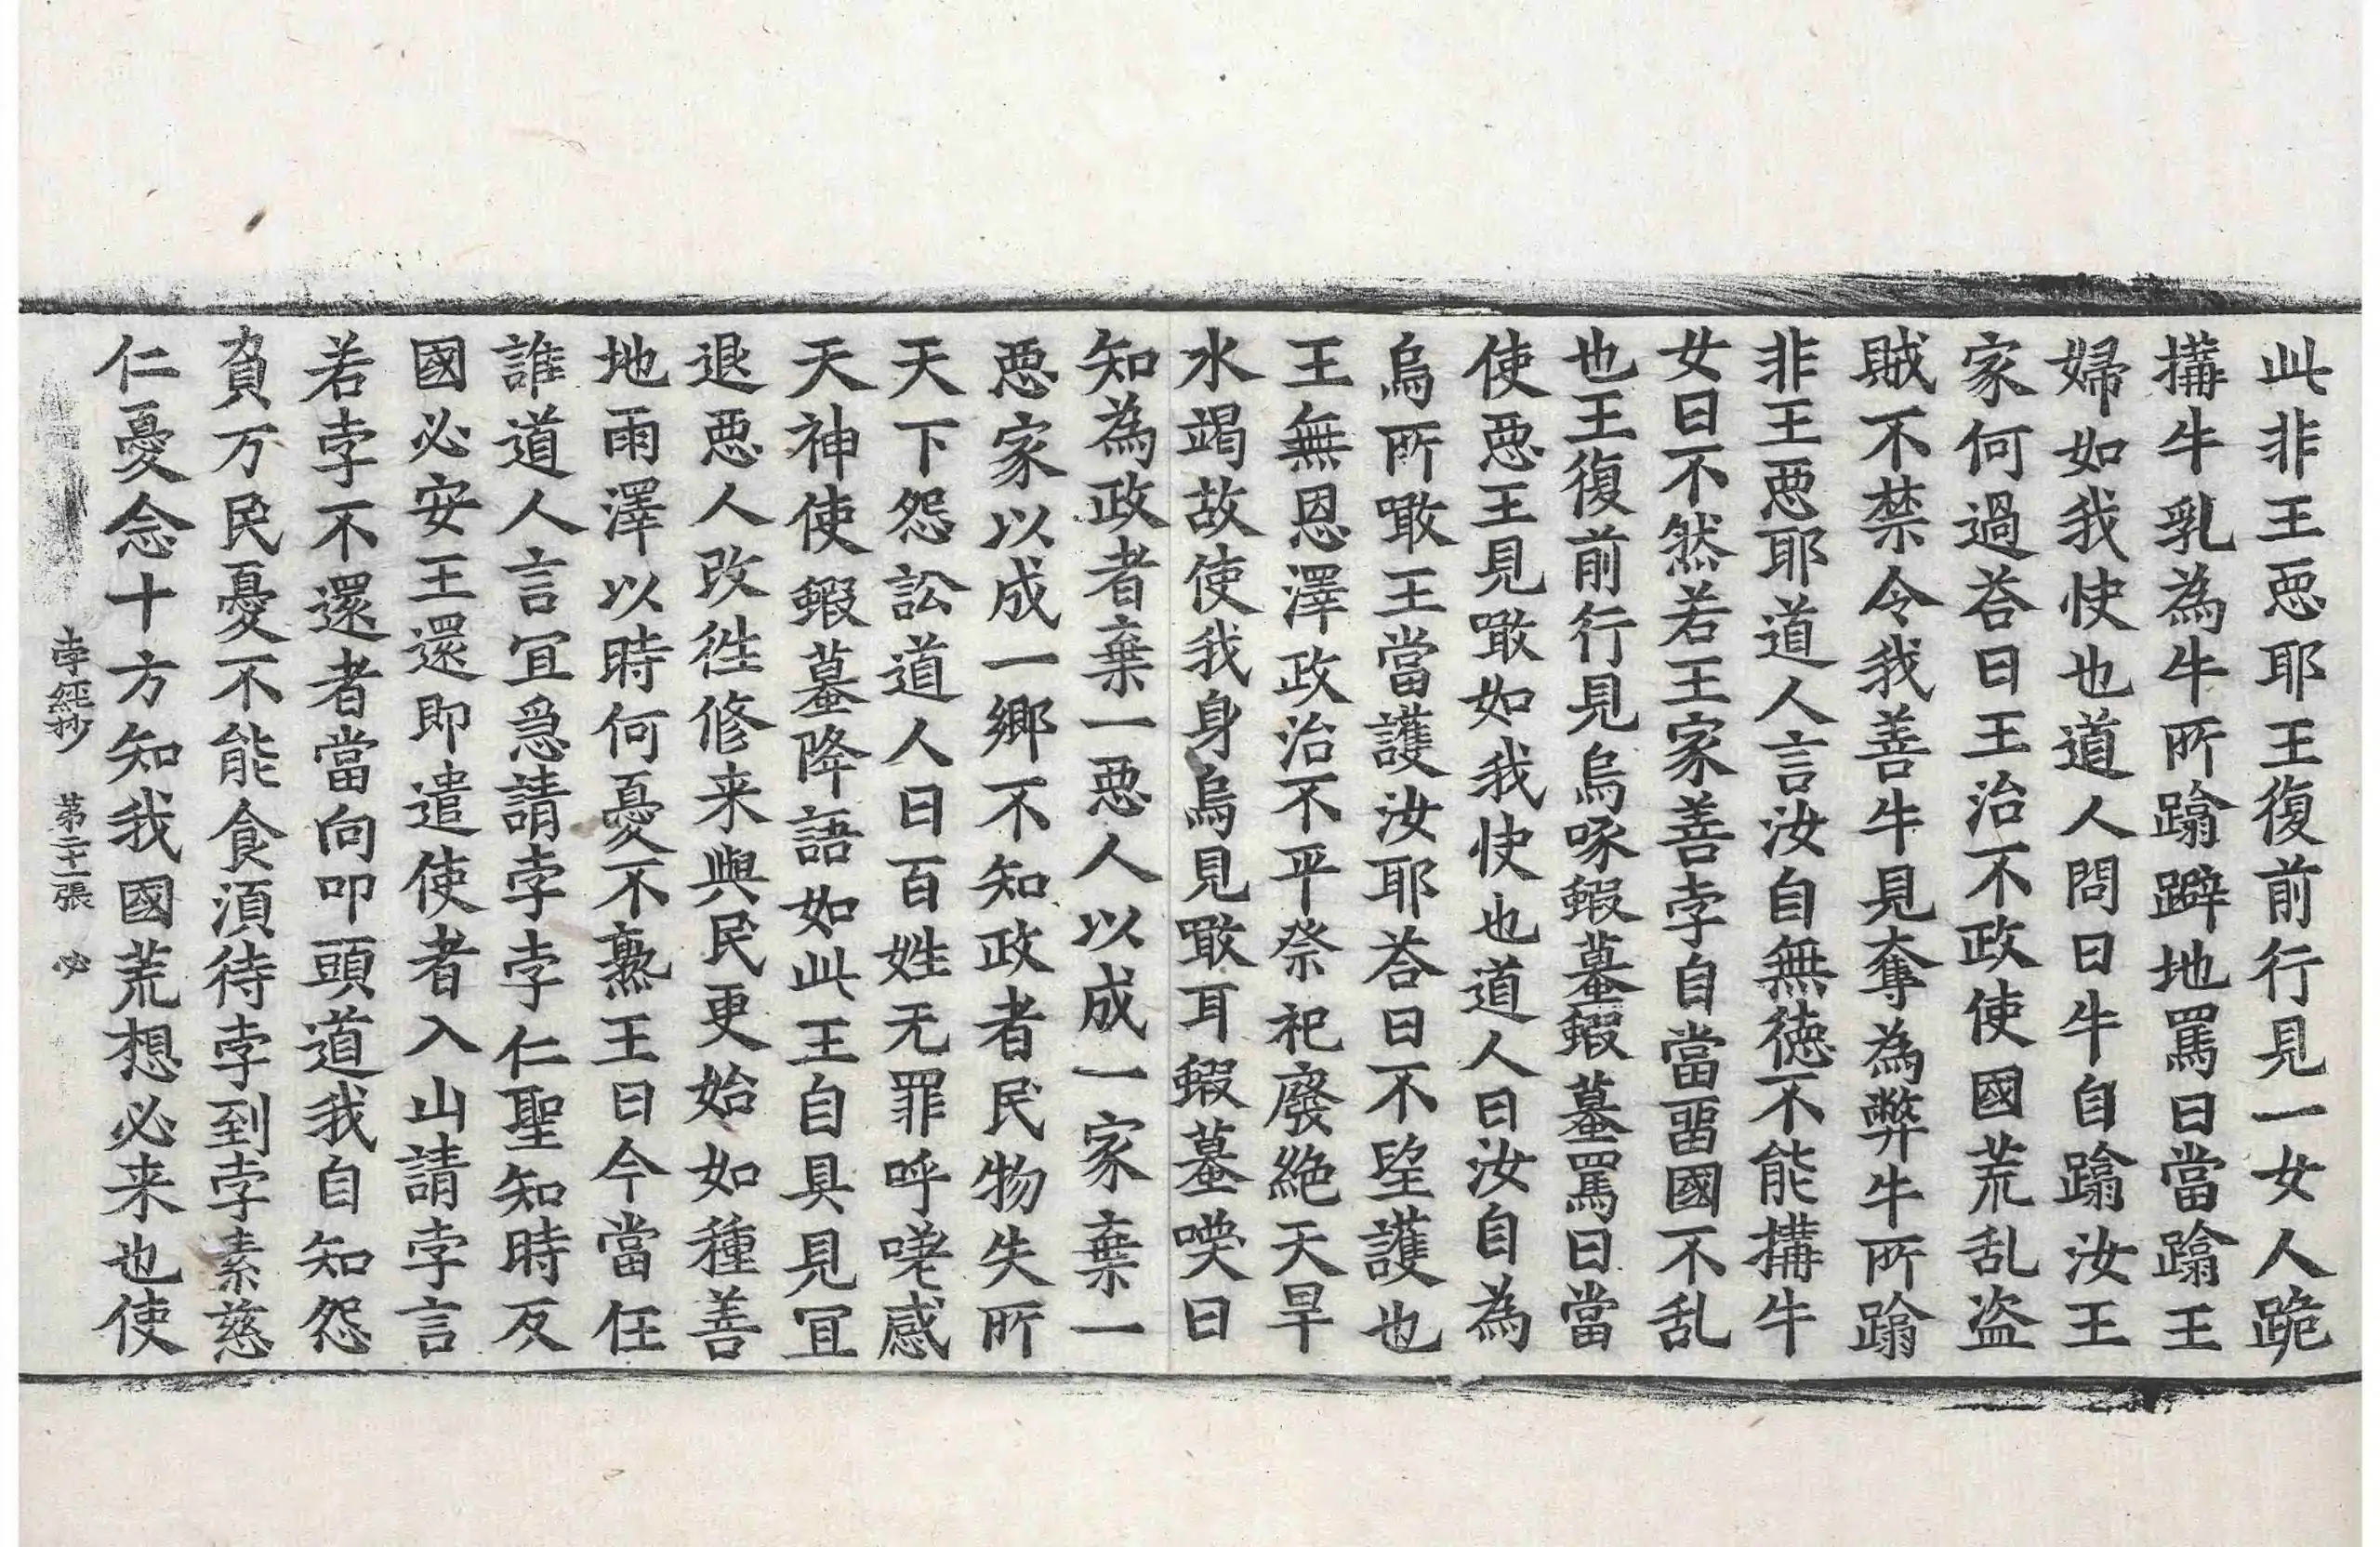 此非王惡耶王復前行見一女人跪
搆牛乳為牛所蹹躃地罵曰當蹹王
婦如我快也道人問曰牛自蹹汝王
家何過荅曰王治不政使國荒乱盗
賊不禁令我善牛見奪為弊牛所蹹
非王惡耶道人言汝自無德不能搆牛
女曰不然若王家善孛自當畱國不乱
也王復前行見烏啄蝦蟇蝦蟇罵曰當
使惡王見噉如我快也道人曰汝自為
烏所噉王當護汝耶荅曰不望護也
王無恩澤政治不平祭祀廢絶天旱
水竭故使我身烏見噉耳蝦蟇嘆曰
知為政者棄一惡人以成一家棄一
惡家以成一鄉不知政者民物失所
天下怨訟道人曰百姓无罪呼嗟感
天神使蝦蟇降語如此王自具見宜
退惡人改徃修来與民更始如種善
地雨澤以時何憂不熟王曰今當任
誰道人言宜急請孛孛仁聖知時反
國必安王還即遣使者入山請孛言
若孛不還者當向叩頭道我自知怨
負万民憂不能食湏待孛到孛素慈
仁憂念十方知我國荒想必来也使
孛經抄 第二十二張 必